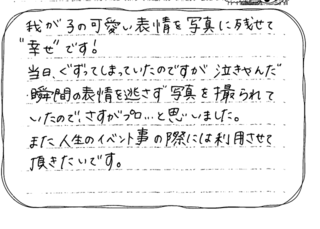 我が子の可愛い表情を写真に残せて
"幸せ"です!
当日、ぐずってしまっていたのですが 泣きやんだ
瞬間の表情を逃さず写真を撮られて
いたので、さすがプロ…と思いました。
また人生のイベント事の際には利用させて
頂きたいです。